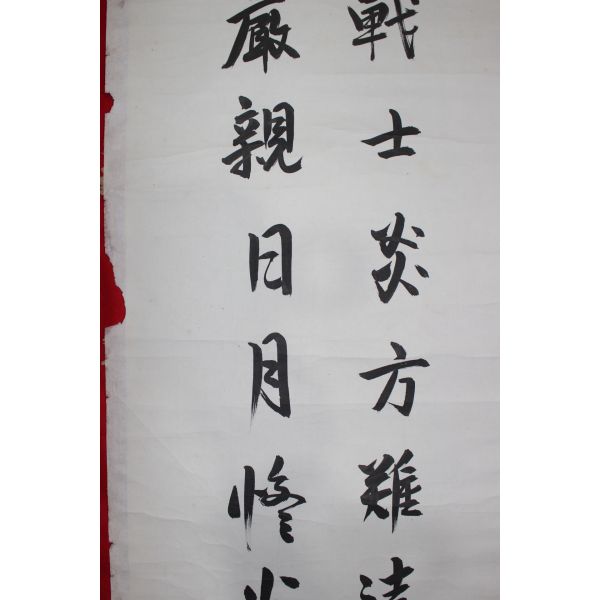 戰士炎方難
嚴親日月慘